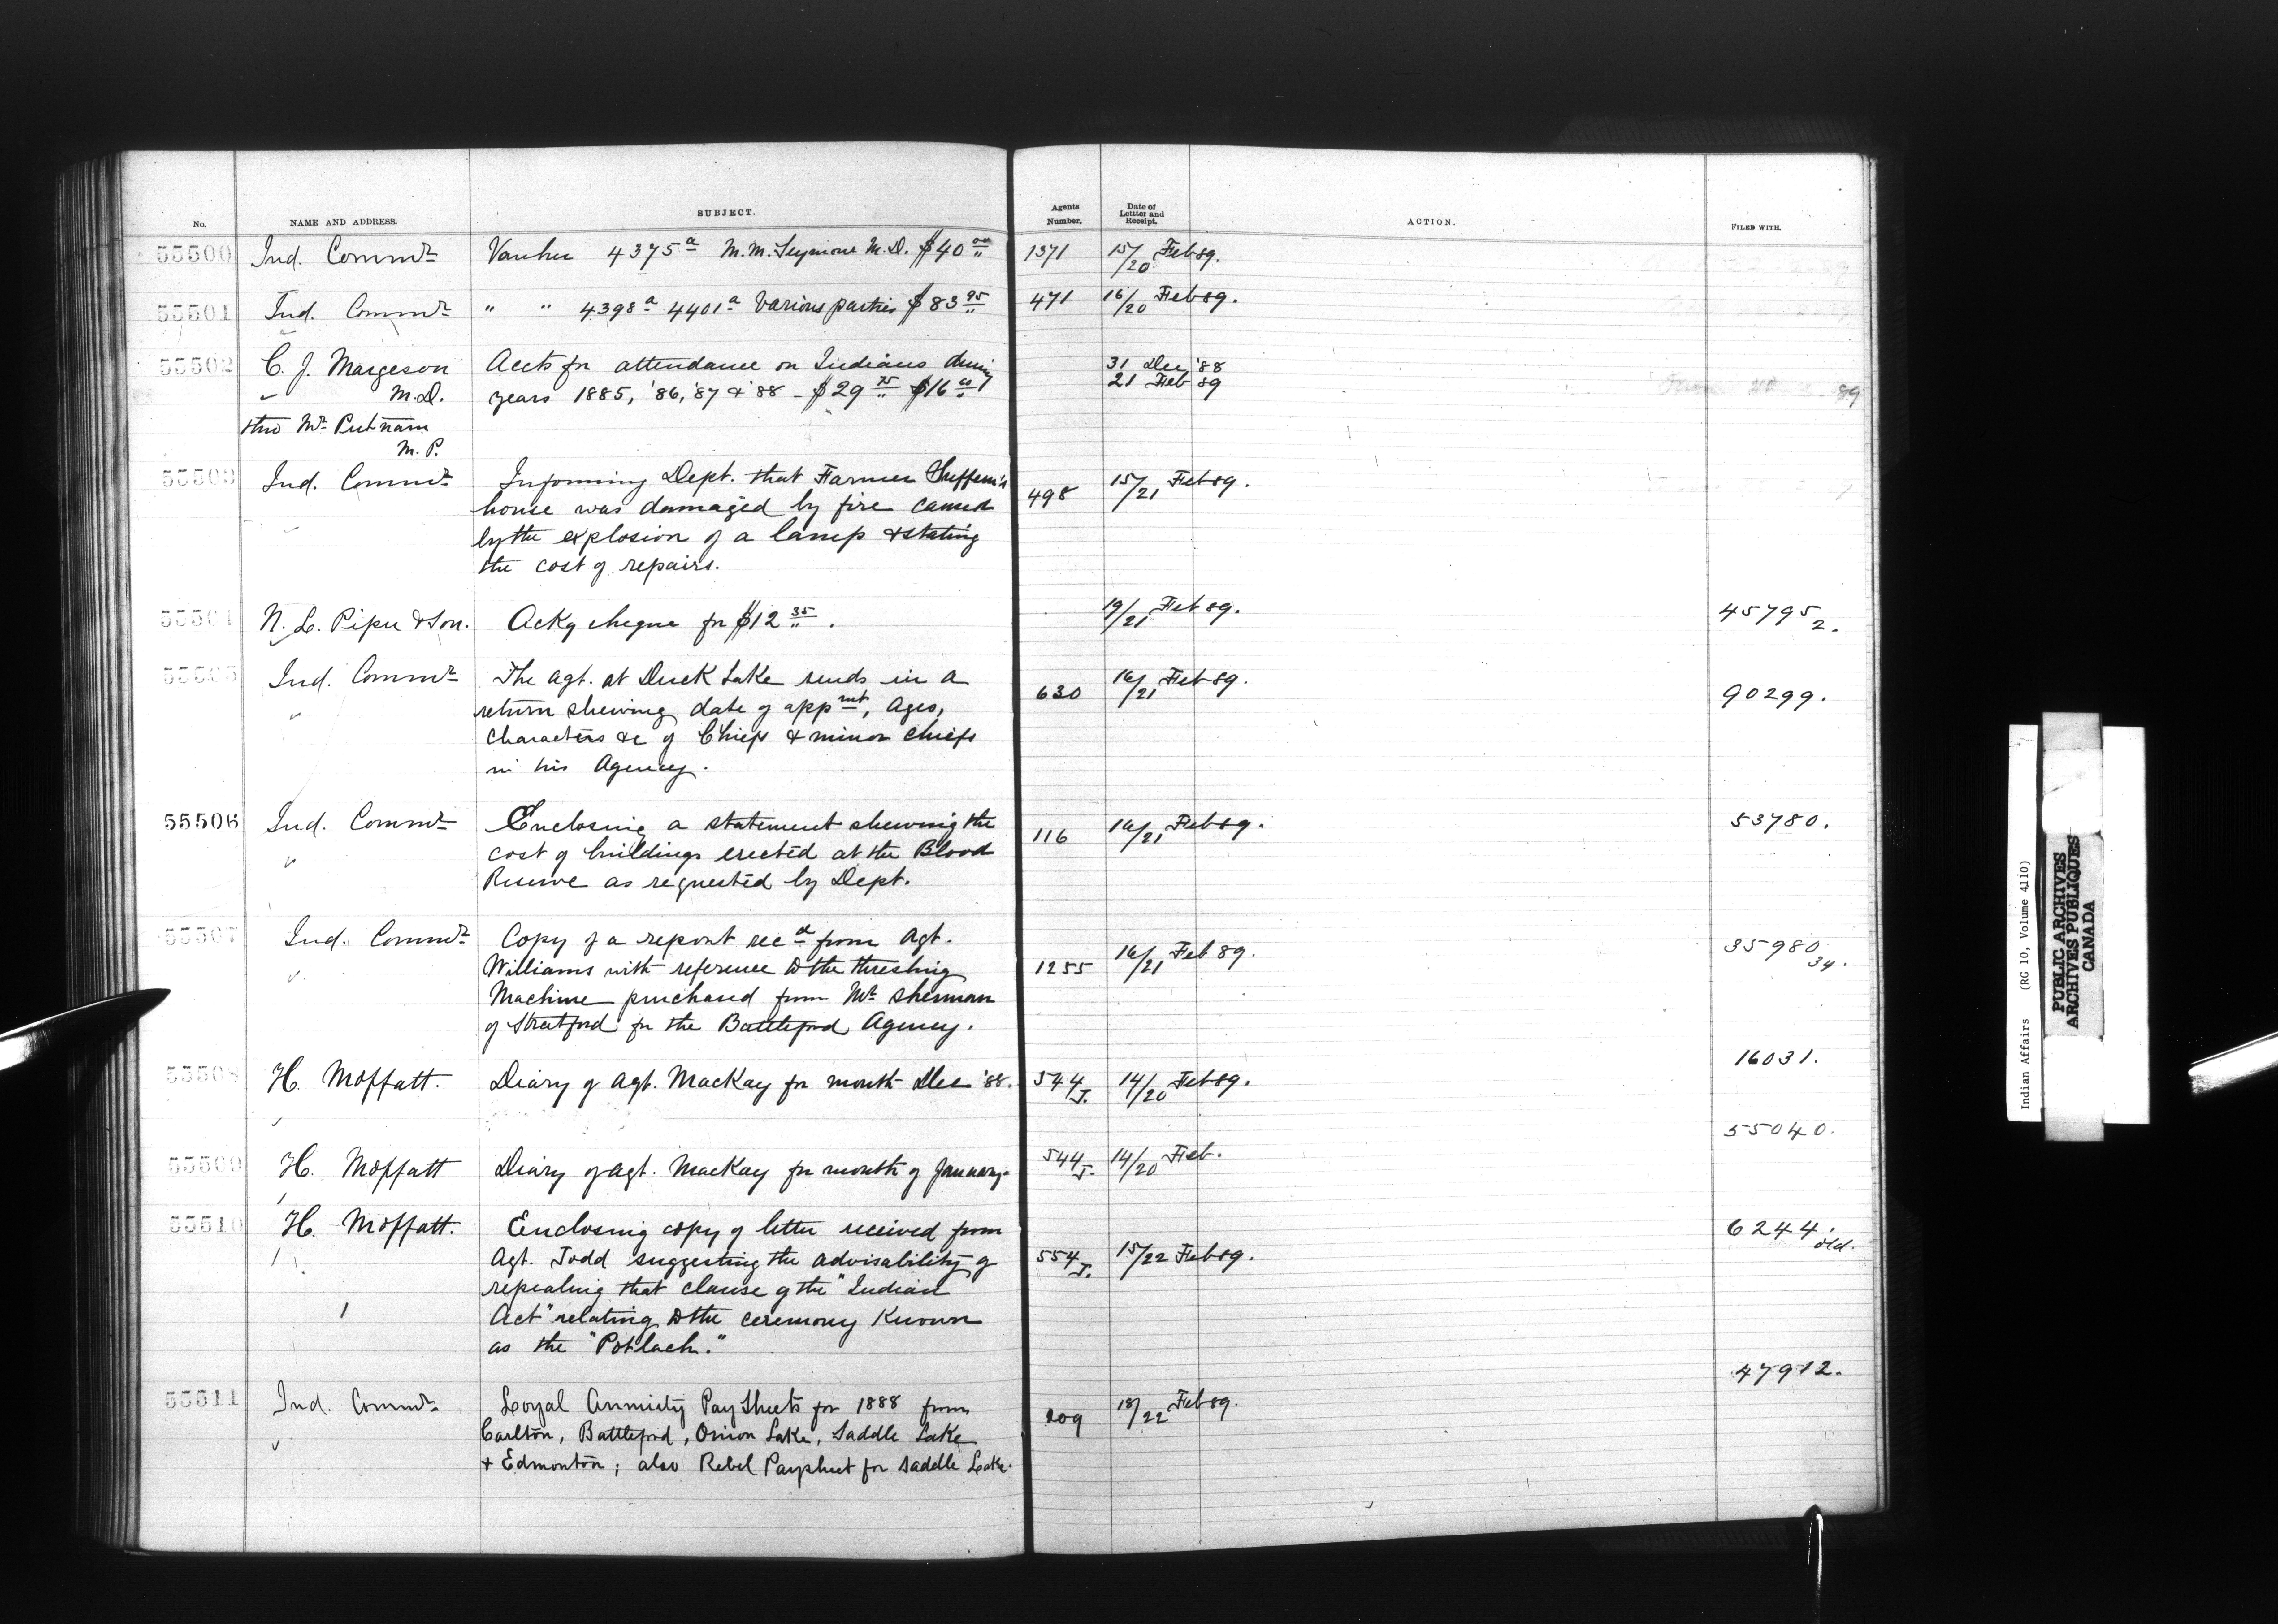 No. NAME AND ADDRESS. SUBJECT. Agents Number. Date of Lettter and Receipt. ACTION. FILED WITH.
55500 Ind. Commr Voucher 4375a M. M. Seymour M.D. $40 00 1371 15/20 Feb 89.
55501 Ind. Commr " " 4398a 4401a Various parties $83 95 471 16/20 Feb 89.
55502 C. J. Margeson Accts for attendance on Indians during 31 Dec '88
M.D. years 1885, '86, '87 & '88 - $29 75 $16 00 21 Feb 89
thro Mr Putnam
M. P.
55503 Ind. Commr Informing Dept. that Farmer 498 15/21 Feb 89.
house was damaged by fire caused
by the explosion of a lamp & stating
the cost of repairs.
55504 N. L. Piper & Son. Ackg cheque for $12 35. 19/21 Feb 89. 45795 2.
55505 Ind. Commr The Agt. at Duck Lake sends in a 630 16/21 Feb 89. 90299.
return shewing date of appmt, Ages,
Characters &c of Chiefs & minor chiefs
in his Agency.
55506 Ind. Commr Enclosing a statement shewing the 116 16/21 Feb 89. 53780.
cost of buildings erected at the Blood
Reserve as requested by Dept.
55507 Ind. Commr Copy of a report recd from Agt. 35980 34.
Williams with reference to the threshing 1255 16/21 Feb 89.
Machine purchased from Mr Sherman
of Stratford for the Battleford Agency.
16031.
55508 H. Moffatt. Diary of Agt. MacKay for month Dec '88. 544 J. 14/20 Feb 89.
55040.
55509 H. Moffatt Diary of Agt. MacKay for month of January. 544 J. 14/20 Feb.
55510 H. Moffatt. Enclosing copy of letter received from 6244. old.
Agt. Todd suggesting the advisability of 554 J. 15/22 Feb 89.
repealing that clause of the "Indian
Act" relating to the ceremony Known
as the "Potlach."
47912.
55511 Ind. Commr Loyal Annuity Pay Sheets for 1888 from 209 18/22 Feb 89.
Carlton, Battleford, Onion Lake, Saddle Lake
& Edmonton; also Rebel Paysheet for Saddle Lake.
Indian Affairs (RG 10, Volume 4110)
PUBLIC ARCHIVES
ARCHIVES PUBLIQUES
CANADA